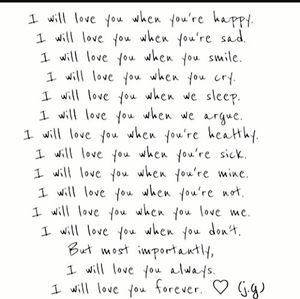 I will love you when you're happy.
I will love you when you're sad.
I will love you when you smile.
I will love you when you cry.
I will love you when we sleep.
I will love you when we argue.
I will love you when you're healthy.
I will love you when you're sick.
I will love you when you're mine.
I will love you when you're not.
I will love you when you love me.
I will love you when you don't.
But most importantly,
I will love you always.
I will love you forever. ♡ (j.g)